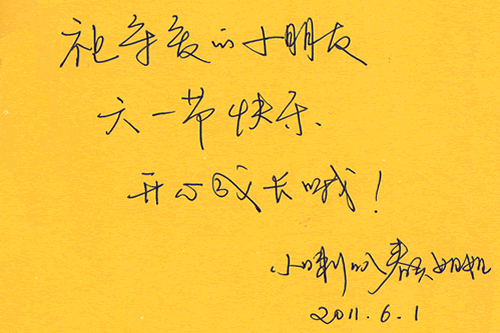 祝亲爱的小朋友
六一节快乐、
开心成长哦！
小喇叭春天姐姐
2011.6.1